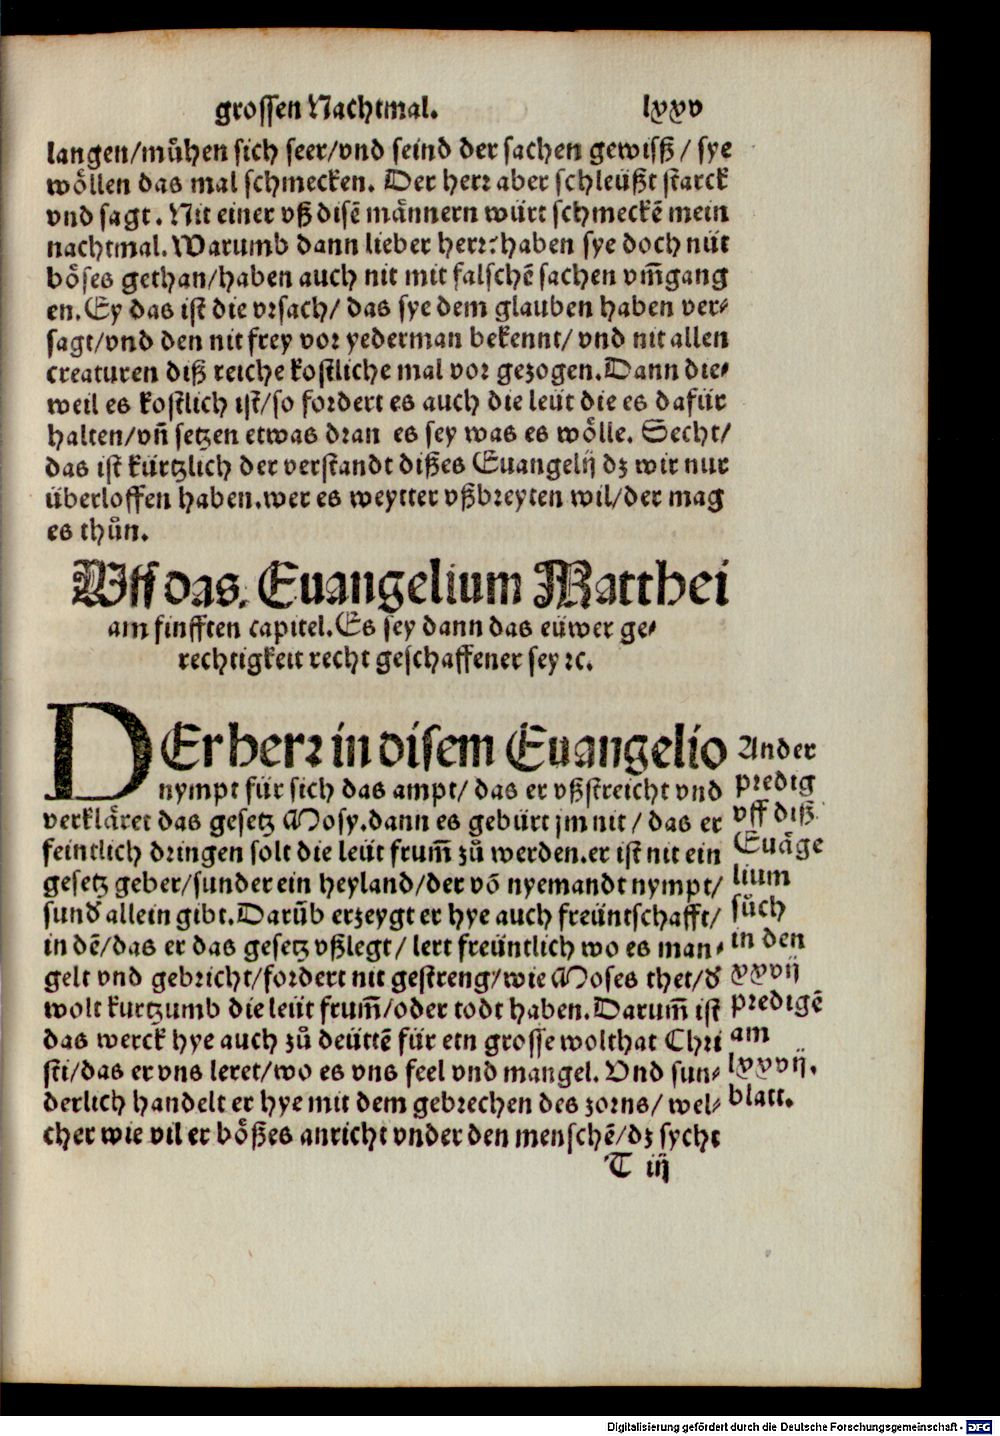 grossen Nachtmal. lxxv
langen/mühen sich seer/vnd seind der sachen gewisß / sye
wöllen das mal schmecken. Der herr aber schleüßt starck
vnd sagt. Nit einer vß disē männern würt schmeckē mein
nachtmal. Warumb dann lieber herr: haben sye doch nüt
böses gethan/haben auch nit mit falschē sachen vm̄gang
en. Ey das ist die vrsach/ das sye dem glauben haben ver-
sagt/vnd den nit frey vor yederman bekennt/ vnd nit allen
creaturen diß reiche kostliche mal vor gezogen. Dann die-
weil es kostlich ist/so fordert es auch die leüt die es dafür
halten/vn̄ setzen etwas dran es sey was es wölle. Secht/
das ist kürtzlich der verstandt dißes Euangelij dz wir nur
überloffen haben. wer es weytter vßbreyten wil/der mag
es thůn.
Vff das. Euangelium Matthei
am finfften capitel. Es sey dann das eüwer ge-
rechtigkeit recht geschaffener sey ꝛc.
DEr herr in disem Euangelio
nympt für sich das ampt/ das er vßstreicht vnd
verkläret das gesetz Mosy. dann es gebürt jm nit / das er
feintlich dringen solt die leüt frum̄ zů werden. er ist nit ein
gesetz geber/sunder ein heyland/der vō nyemandt nympt/
sund̓ allein gibt. Darūb erzeygt er hye auch freüntschafft/
in dē/das er das gesetz vßlegt/ lert freüntlich wo es man-
gelt vnd gebricht/fordert nit gestreng/wie Moses thet/d̓
wolt kurtzumb die leüt frum̄/oder todt haben. Darum̄ ist
das werck hye auch zů deüttē für ein grosse wolthat Chri
sti/das er vns leret/wo es vns feel vnd mangel. Vnd sun-
derlich handelt er hye mit dem gebrechen des zorns/ wel-
cher wie vil er bößes anricht vnder den menschē/dz sycht
T iij
Ander
predig
vff diß
Euāge
lium
sůch
in den
xxvij
predigē
am
lxxvij.
blatt.
Digitalisierung gefördert durch die Deutsche Forschungsgemeinschaft - DFG